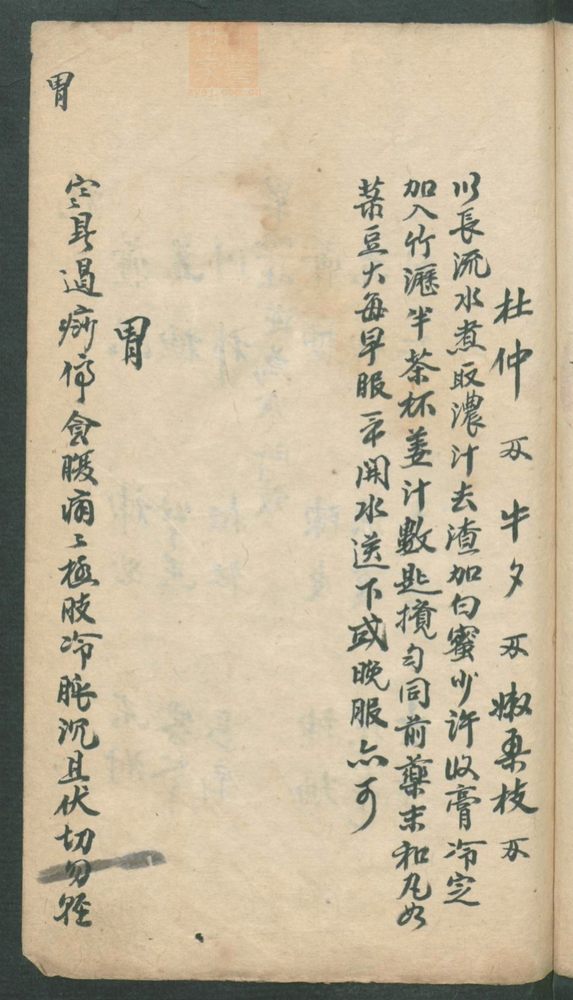 杜仲 牛夕 嫩桑枝
以長流水煮取濃汁去渣加白蜜少許收膏冷定
加入竹瀝半茶杯姜汁數匙攪勻同前藥末和丸如
菉豆大每早服 開水送下或晚服亦可
胃
定其過痧停食腹痛〻極肢冷脈沉且伏切勿輕
胃